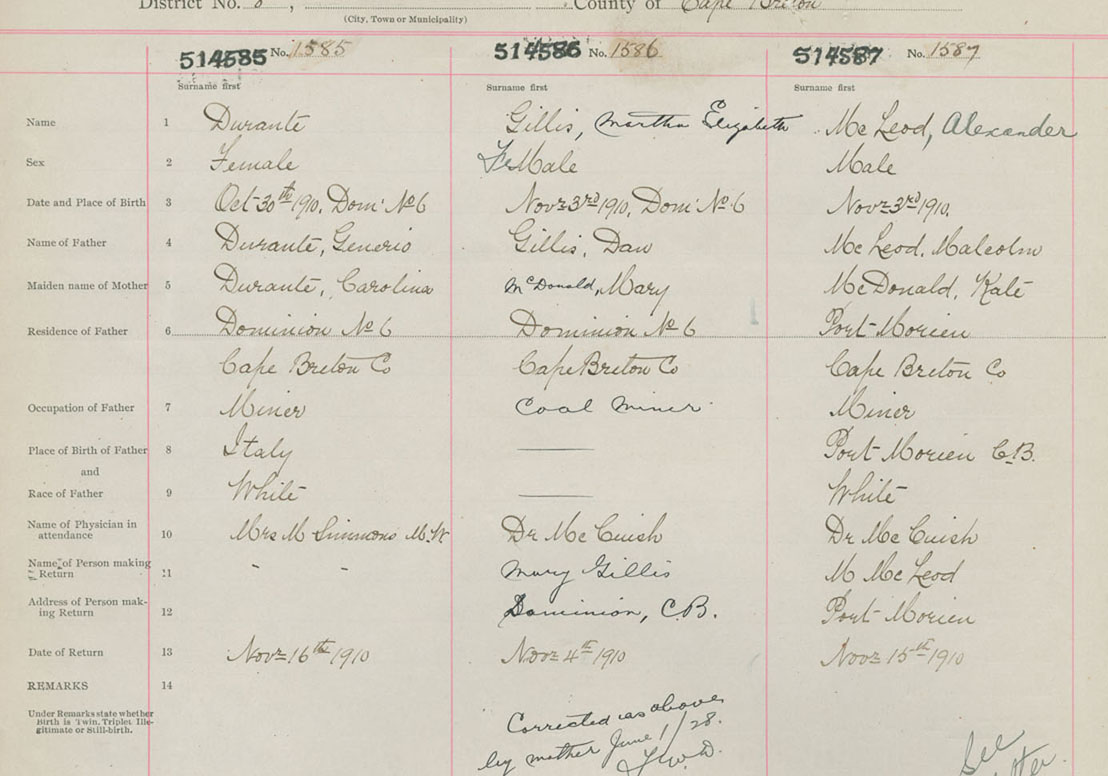 District No. 8, County of Cape Breton
(City, Town or Municipality)
514585 No. 1585 514586 No. 1586 514587 No. 1587
Surname first Surname first Surname first
Name 1 Durante Gillis, Martha Elizabeth McLeod, Alexander
Sex 2 Female FeMale Male
Date and Place of Birth 3 Oct 30th 1910, Dom' No 6 Nov 3rd 1910, Dom' No 6 Nov 3rd 1910,
Name of Father 4 Durante, Generio Gillis, Dan McLeod, Malcolm
Maiden name of Mother 5 Durante, Carolina McDonald, Mary McDonald, Kate
Residence of Father 6 Dominion No 6 Dominion No 6 Port Morien
Cape Breton Co Cape Breton Co Cape Breton Co
Occupation of Father 7 Miner Coal Miner Miner
Place of Birth of Father 8 Italy — Port Morien C.B.
and
Race of Father 9 White — White
Name of Physician in
attendance 10 Mrs M Simmons M.W Dr McCuish Dr McCuish
Name of Person making
Return 11 - - Mary Gillis M McLeod
Address of Person mak-
ing Return 12 Dominion, C.B. Port Morien
Date of Return 13 Nov 16th 1910 Nov 4th 1910 Nov 15th 1910
REMARKS 14
Under Remarks state whether
Birth is Twin, Triplet Ille-
gitimate or Still-birth.
Corrected as above
by mother June 1/28.
See